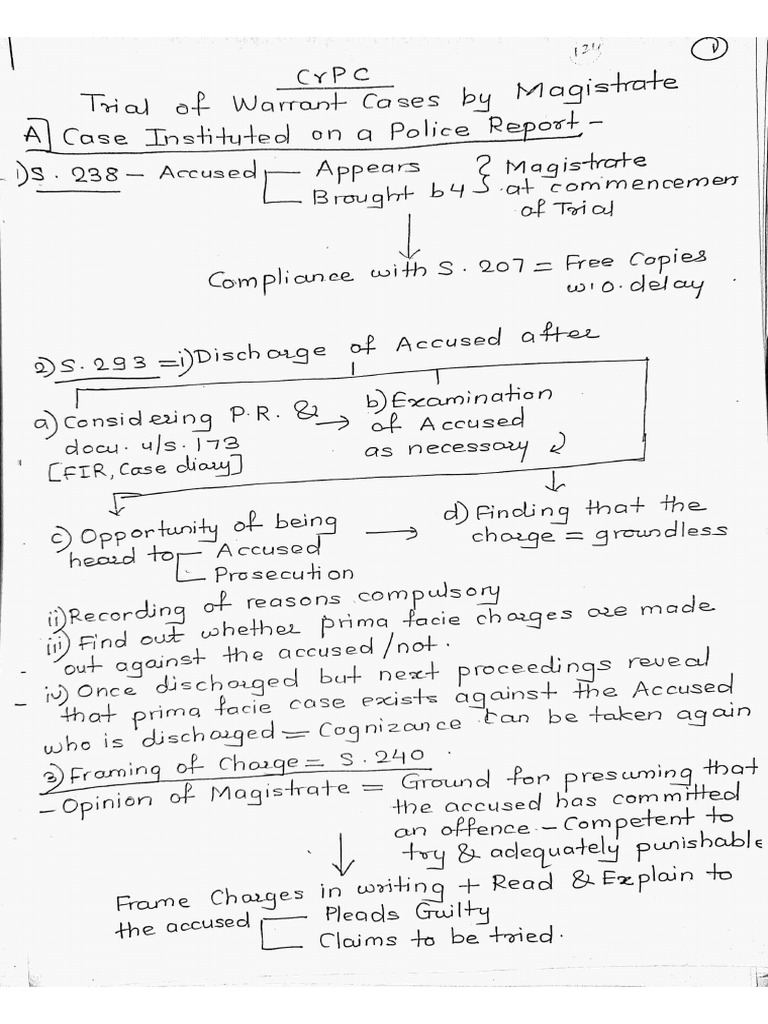 1
CrPC
Trial of Warrant Cases by Magistrate
A] Case Instituted on a Police Report -
1) S. 238 - Accused Appears } Magistrate
Brought b4 at commencemen
of Trial
Compliance with S. 207 = Free Copies
w.o. delay
2) S. 293 = i) Discharge of Accused after
a) Considering P.R. & → b) Examination
docu. u/s. 173 of Accused
[FIR, Case diary] as necessary
c) Opportunity of being → d) Finding that the
heard to Accused charge = groundless
Prosecution
ii) Recording of reasons compulsory
iii) Find out whether prima facie charges are made
out against the accused/not.
iv) Once discharged but next proceedings reveal
that prima facie case exists against the Accused
who is discharged = Cognizance can be taken again
3) Framing of Charge = S. 240
- Opinion of Magistrate = Ground for presuming that
the accused has committed
an offence - Competent to
try & adequately punishable
Frame Charges in writing + Read & Explain to
the accused Pleads Guilty
Claims to be tried.